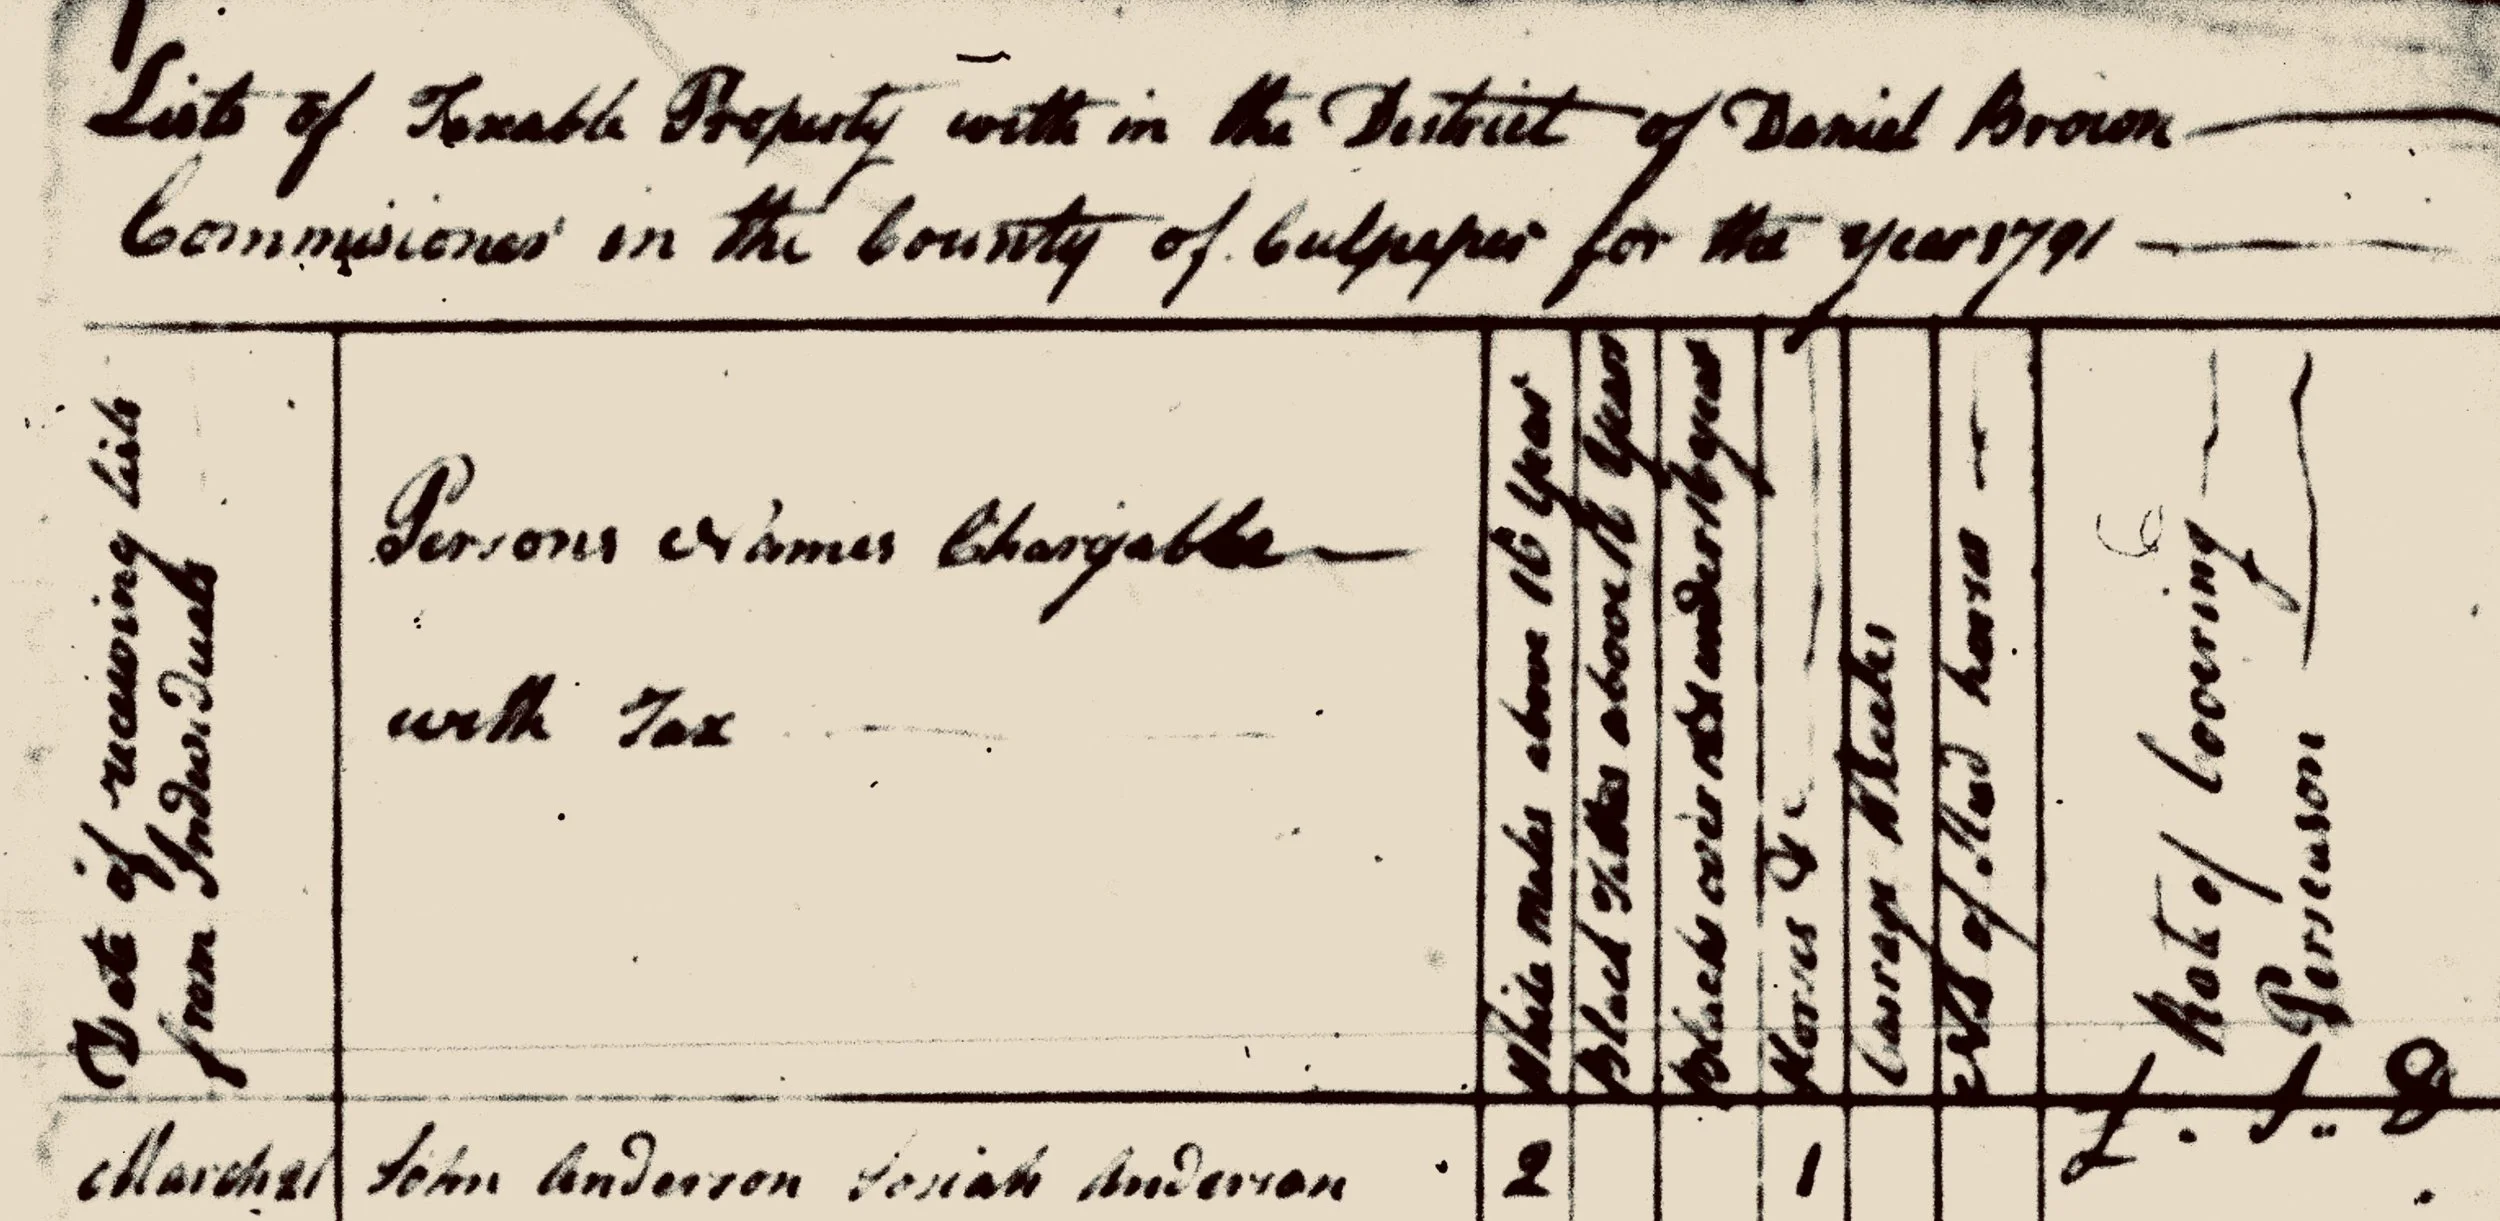 Lists of Taxable Property with in the District of Daniel Brown
Commisioner in the County of Culpeper for the year 1791
Date of receiving list
from Individuals
Persons Names Chargable
with Tax
White Males above 16 Year
Black Tithes above 16 Year
Blacks over 12 & under 16 year
Horses &c
Carrage Wheels
No of Stud horses
Rate of Covering
Pr Season
£ . S .. D
March 21 John Anderson Josiah Anderson 2 1